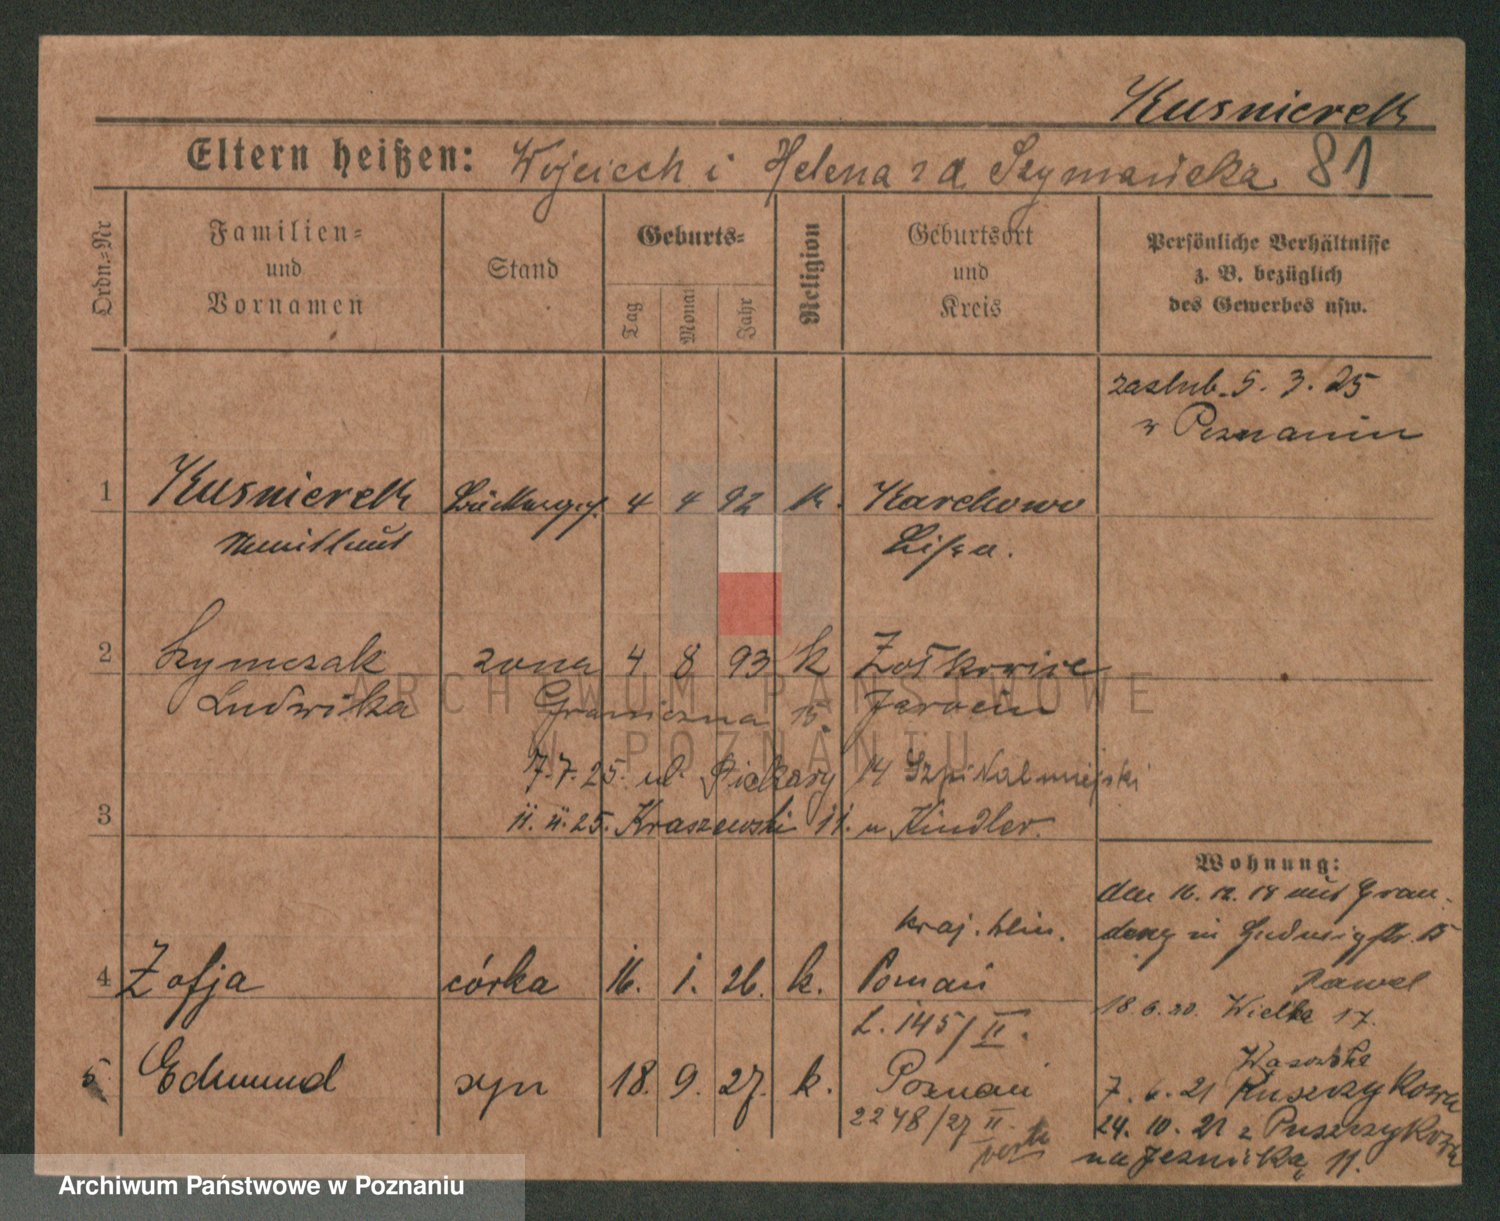 Kusnierek
Eltern heißen: Wojciech i Helena z d. Szymańska 81
Ordn.-Nr
Familien-
und
Vornamen
Stand
Geburts-
Tag
Monat
Jahr
Religion
Geburtsort
und
Kreis
Persönliche Verhältnisse
z. B. bezüglich
des Gewerbes usw.
zaslub. 5. 3. 25
w Poznaniu
1 Kusnierek 4 4 92 k. Karchowo
Lissa.
2 Szymczak zona 4 8 93 k Żołkowice
Ludwika Graniczna 15. Jarocin
7.7.25. ul. Piekary 14 Szpital miejski
3 11. 11. 25. Kraszewski 11. u Kindler.
Wohnung:
den 16. 12. 18 aus Grau-
denz in Ludwigstr. 15
4 Zofja córka 16. 1. 26. k. Poznań
Pawel
18. 6. 20. Wielka 17.
L. 145/II.
5 Edmund syn 18. 9. 27. k. Poznań
2248/27 II.
7. 6. 21 Puszczykowa
24. 10. 21 z Puszczykowa
na 11.
ARCHIWUM PAŃSTWOWE
W POZNANIU
Archiwum Państwowe w Poznaniu